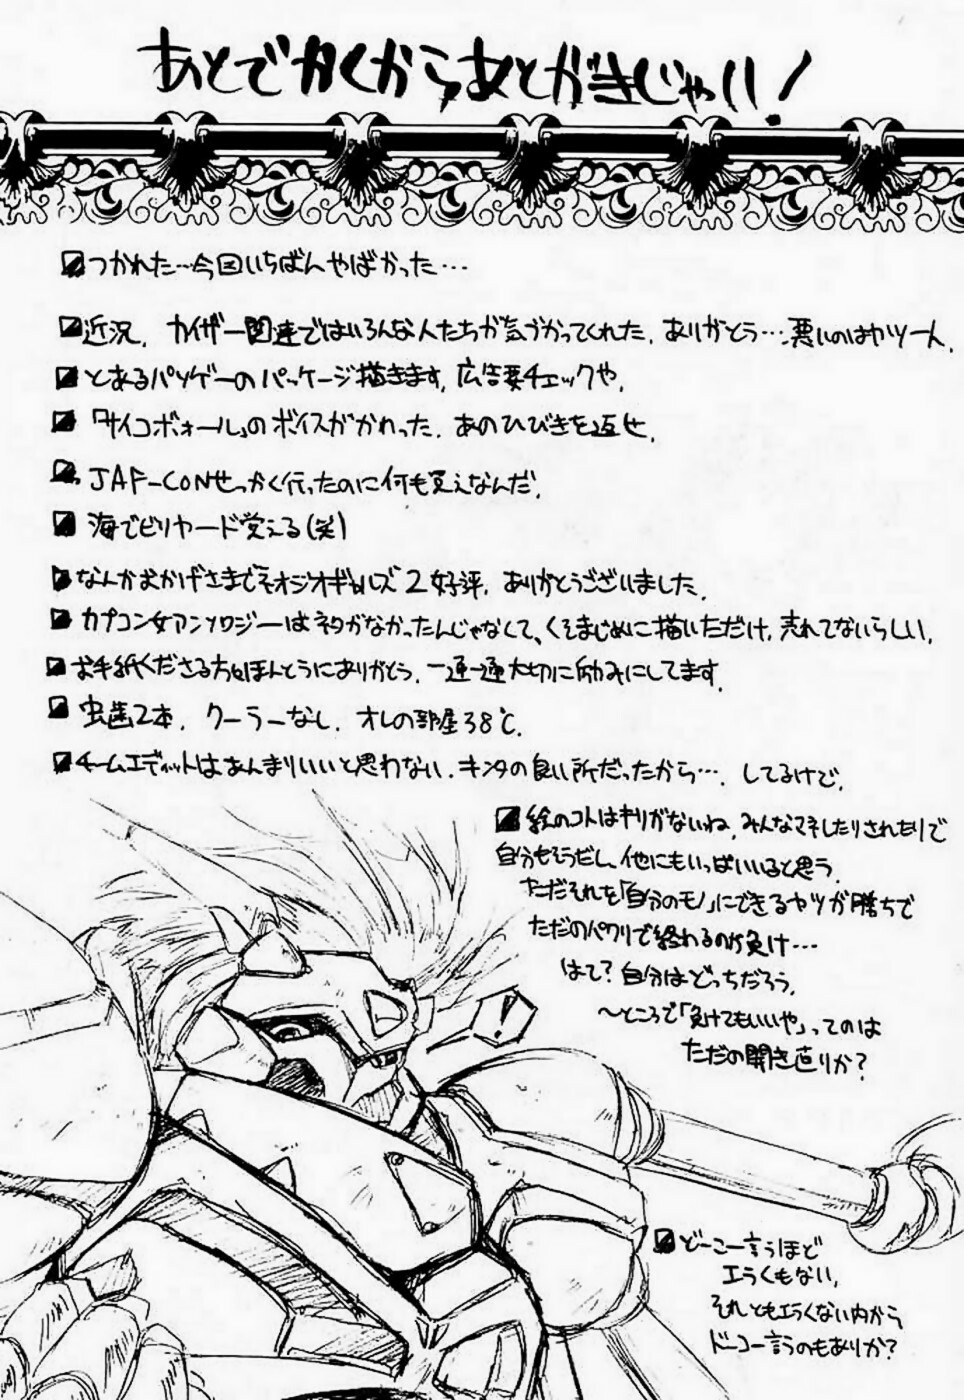 あとでかくからあとがきじゃっ!!
つかれた…今回いちばんやばかった…
近況、カイザー関連ではいろんな人たちが気づかってくれた、ありがとう…悪いのはヤツ一人、
とあるパソゲーのパッケージ描きます、広告要チェックや、
「サイコボォール」のボイスがかわった、あのひびきを返せ、
JAF-CONせっかく行ったのに何も買えなんだ、
海でビリヤード覚える(笑)
なんかおかげさまでネオジオギャルズ2好評、ありがとうございました、
カプコン女アンソロジーはネタがなかったんじゃなくて、くそまじめに描いただけ、売れてないらしい、
お手紙くださる方ほんとうにありがとう、一通一通大切に励みにしてます、
虫歯2本、クーラーなし、オレの部屋38℃、
チームエディットはあんまりいいと思わない、キンタの良い所だったから…、してるけど、
絵のコトはキリがないね、みんなマネしたりされたりで
自分もそうだし、他にもいっぱいいると思う、
ただそれを「自分のモノ」にできるヤツが勝ちで
ただのパクリで終わるのが負け…
はて?自分はどっちだろう、
〜ところで「負けてもいいや」ってのは
ただの開き直りか?
!
どーこー言うほど
エラくもない、
それともエラくない内から
ドーコー言うのもありか?